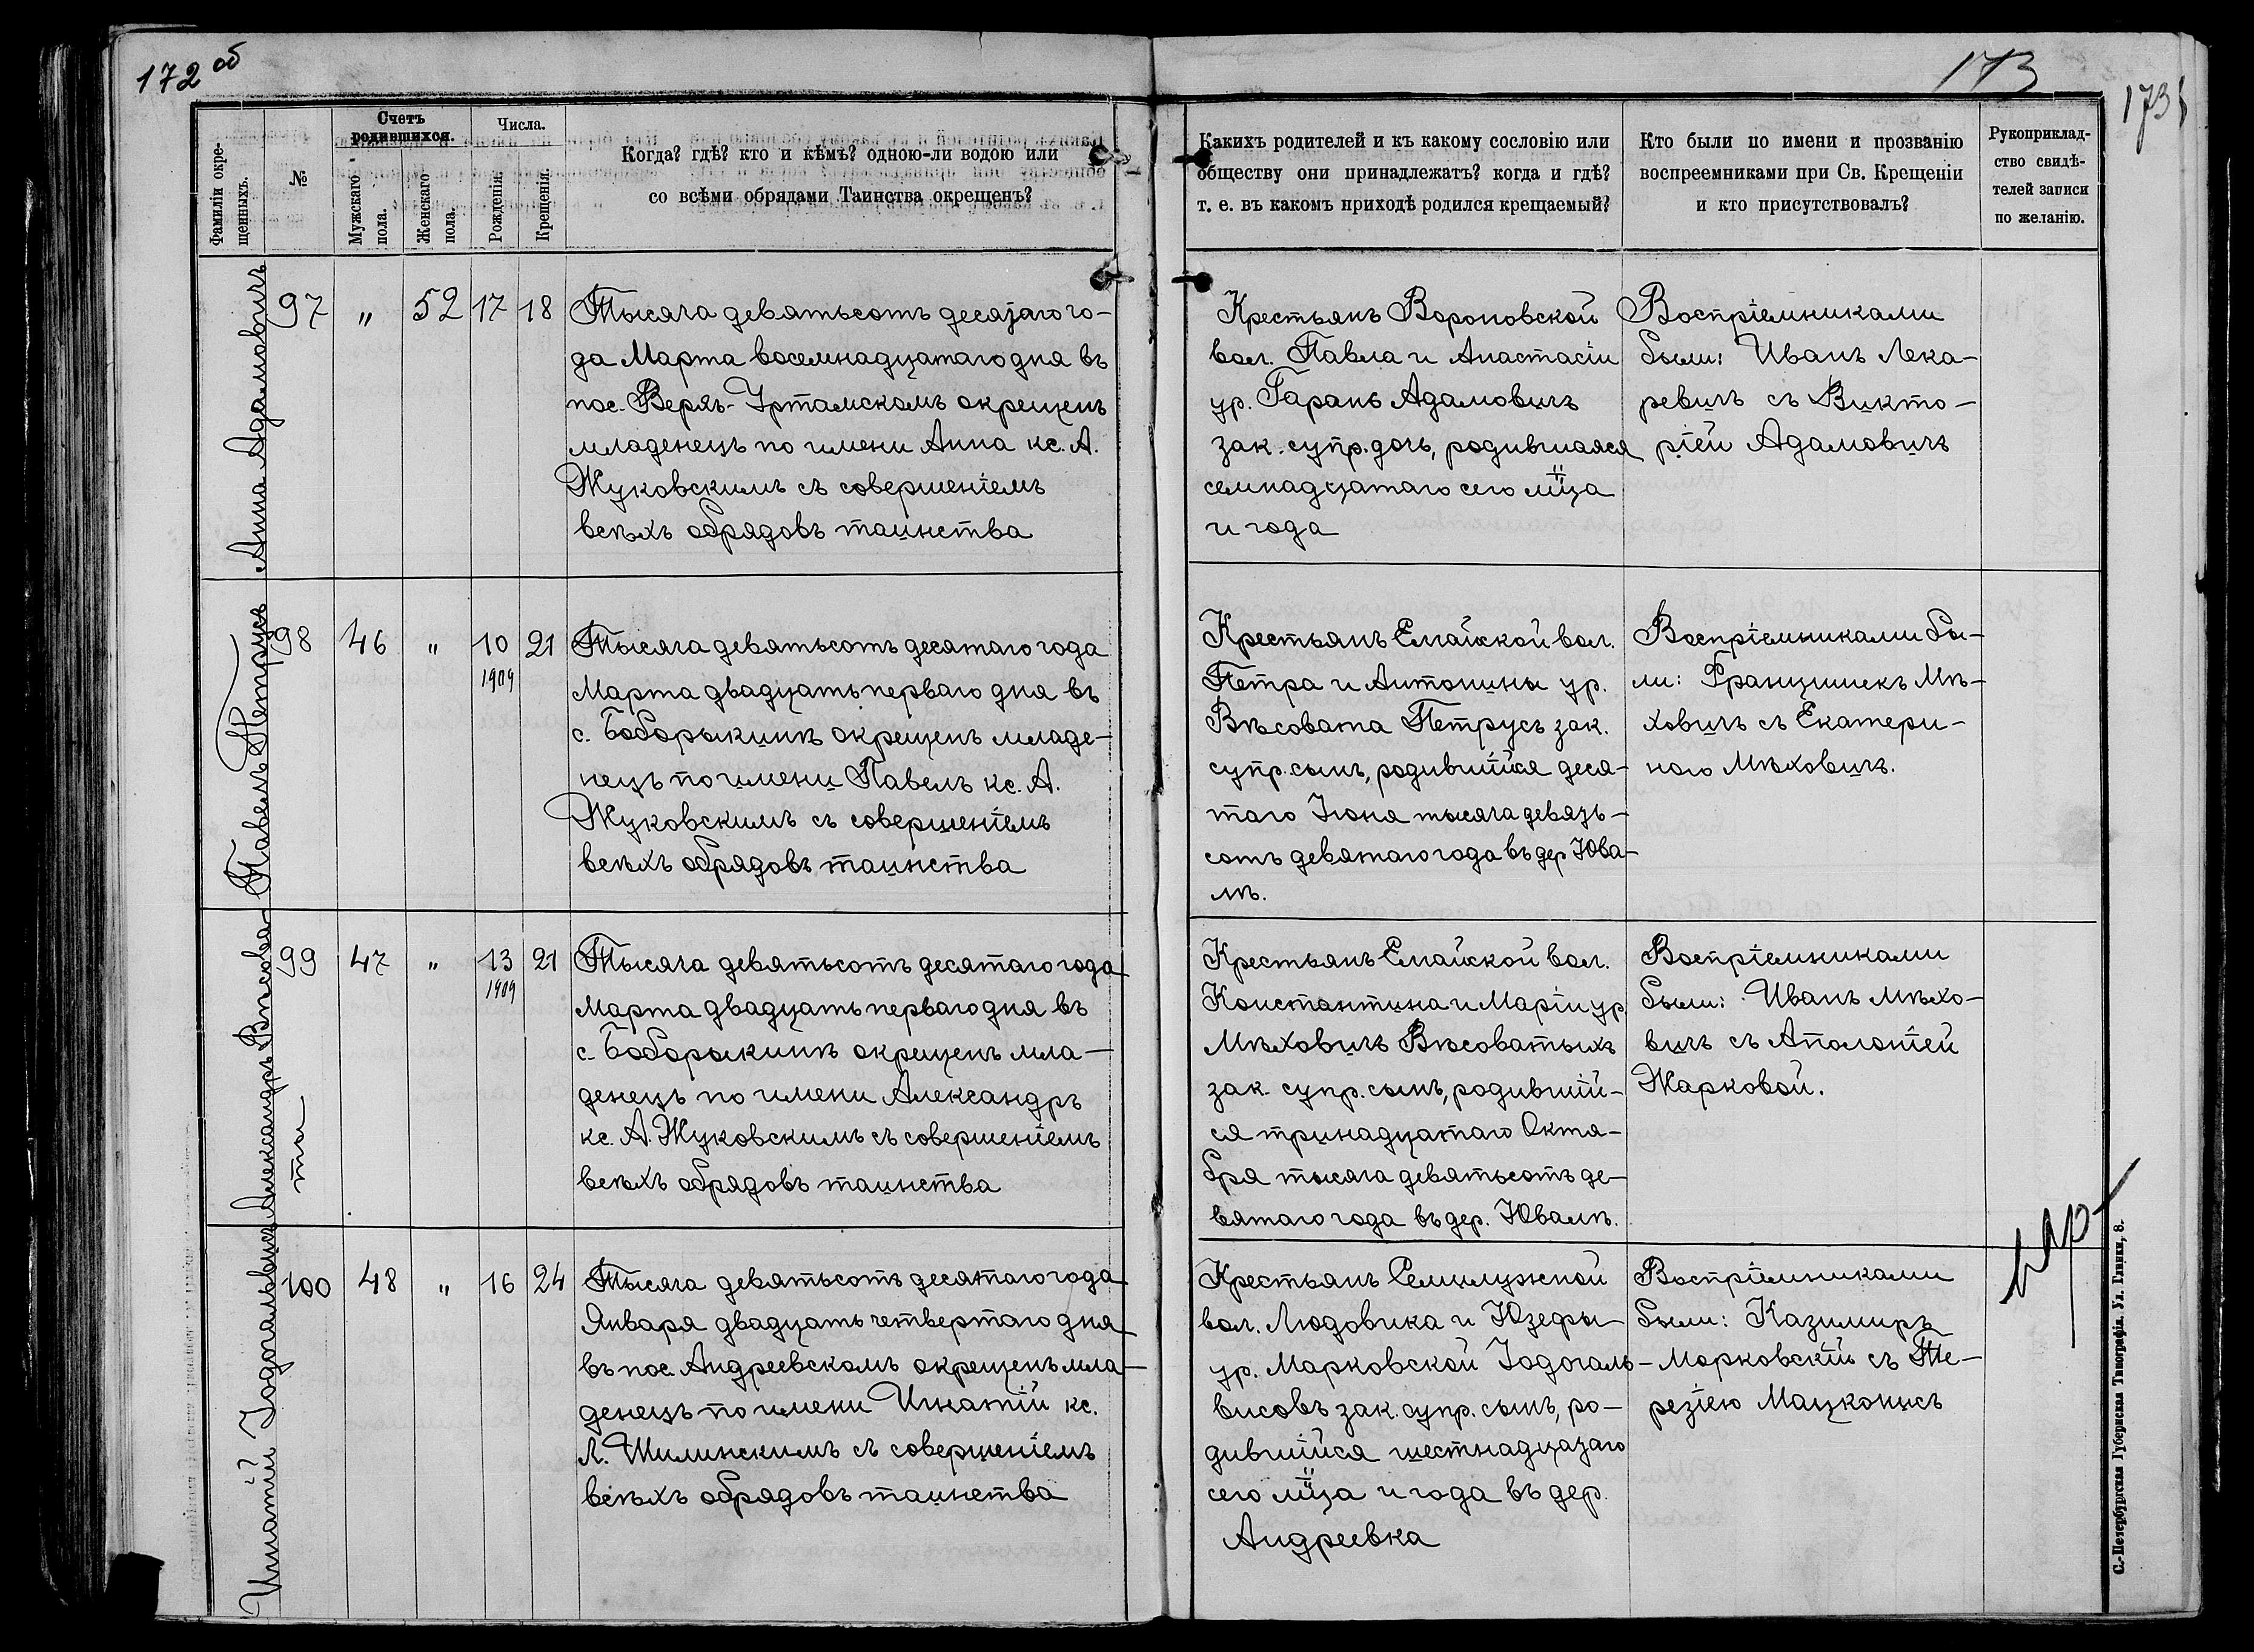 172 об
173
173
Фамиліи окре-
щенныхъ.
№
Счетъ
родившихся.
Мужскаго
пола.
Женскаго
пола.
Числа.
Рожденія.
Крещенія.
Когда? гдѣ? кто и кѣмъ? одною-ли водою или
со всѣми обрядами Таинства окрещенъ?
Какихъ родителей и къ какому сословію или
обществу они принадлежатъ? когда и гдѣ?
т. е. въ какомъ приходѣ родился крещаемый?
Кто были по имени и прозванію
воспреемниками при Св. Крещеніи
и кто присутствовалъ?
Рукоприклад-
ство свидѣ-
телей записи
по желанію.
Анна Адамовичъ
97 " 52 17 18
Тысяча девятьсотъ десятаго го-
да Марта восемнадцатаго дня въ
пос. Верхъ-Уртамскомъ окрещенъ
младенецъ по имени Анна кс. А.
Жуковскимъ съ совершеніемъ
всѣхъ обрядовъ таинства
Крестьянъ Вороновской
вол. Павла и Анастасіи
ур. Гарань Адамовичъ
зак. супр. дочь, родившаяся
семнадцатаго сего мца
и года
Воспріемниками
были: Иванъ Лека-
ревичъ съ Викто-
ріей Адамовичъ
Павелъ Петрусь
98 46 " 10 21
1909
Тысяча девятьсотъ десятаго года
Марта двадцать перваго дня въ
с. Боборыкинѣ окрещенъ младе-
нецъ по имени Павелъ кс. А.
Жуковскимъ съ совершеніемъ
всѣхъ обрядовъ таинства
Крестьянъ Елгайской вол.
Петра и Антонины ур.
Вѣсовата Петрусь зак.
супр. сынъ, родившійся деся-
таго Іюня тысяча девять-
сотъ девятаго года въ дер Юва-
лѣ.
Воспріемниками бы-
ли: Францишекъ Мѣ-
ховичъ съ Екатери-
ною Мѣховичъ.
Александръ Вѣсова-
та
99 47 " 13 21
1909
Тысяча девятьсотъ десятаго года
Марта двадцать перваго дня въ
с. Боборыкинѣ окрещенъ мла-
денецъ по имени Александръ
кс. А. Жуковскимъ съ совершеніемъ
всѣхъ обрядовъ таинства
Крестьянъ Елгайской вол.
Константина и Маріи ур.
Мѣховичъ Вѣсоватыхъ
зак. супр. сынъ, родившій-
ся тринадцатаго Октя-
бря тысяча девятьсотъ де-
вятаго года въ дер. Ювалѣ.
Воспріемниками
были: Иванъ Мѣхо-
вичъ съ Аполоніей
Жарковой.
Игнатій Іодогальвисъ
100 48 " 16 24
Тысяча девятьсотъ десятаго года
Января двадцать четвертаго дня
въ пос. Андреевскомъ окрещенъ мла-
денецъ по имени Игнатій кс.
Л. Шилинскимъ съ совершеніемъ
всѣхъ обрядовъ таинства
Крестьянъ Семилужной
вол. Людовика и Юзефы
ур. Марковской Іодогаль-
висовъ зак. супр. сынъ, ро-
дившійся шестнадцатаго
сего мца и года въ дер.
Андреевка
Воспріемниками
были: Казимиръ
Марковскій съ Те-
резіею Мацконисъ
С.-Петербургская Губернская Типографія. Ул. Глинки, 8.